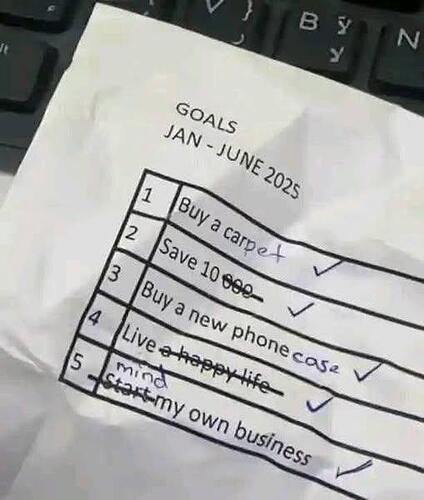 B ў
N
GOALS
JAN - JUNE 2025
1 Buy a carpet ✓
2 Save 10 000 ✓
3 Buy a new phone case ✓
4 Live a happy life ✓
mind
5 start my own business ✓